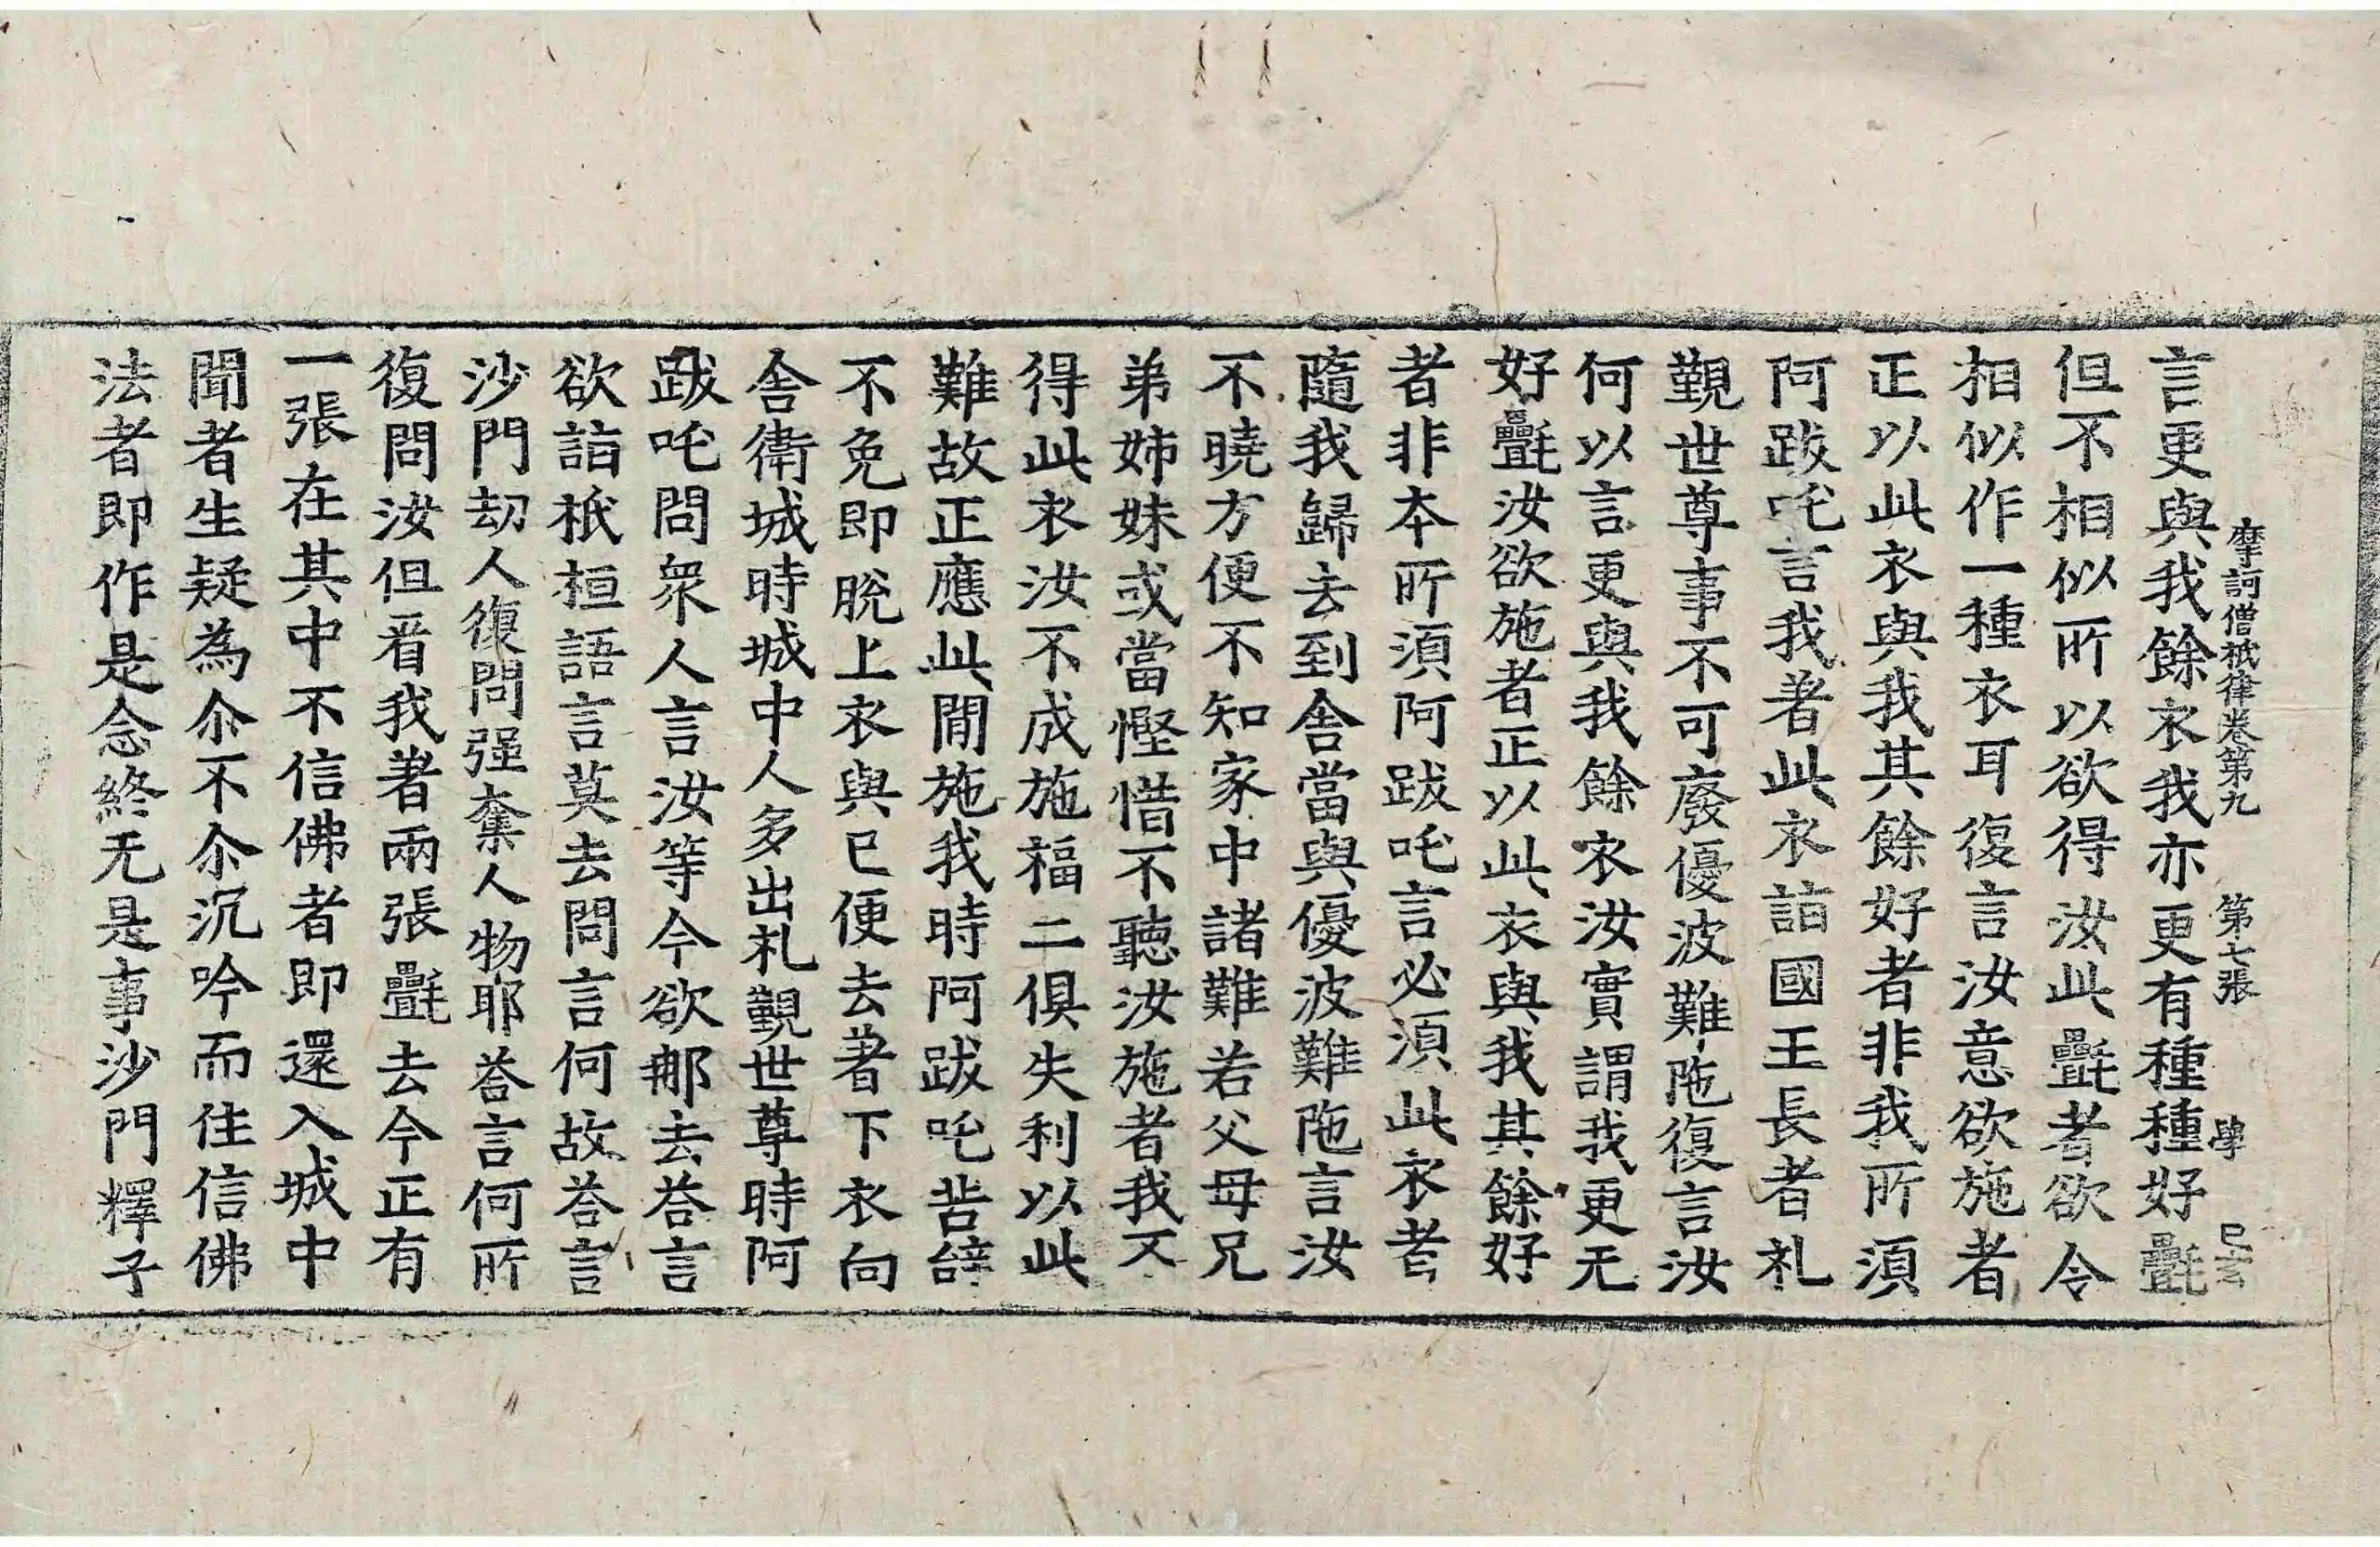 摩訶僧祇律卷第九　第七張　學
言更與我餘衣我亦更有種種好㲲
但不相似所以欲得汝此㲲者欲令
相似作一種衣耳復言汝意欲施者
正以此衣與我其餘好者非我所須
阿跋吒言我著此衣詣國王長者礼
覲世尊事不可廢優波難陁復言汝
何以言更與我餘衣汝實謂我更无
好㲲汝欲施者正以此衣與我其餘好
者非本所須阿跋吒言必須此衣者
隨我歸去到舍當與優波難陁言汝
不曉方便不知家中諸難若父母兄
弟姉妹或當慳惜不聽汝施者我不
得此衣汝不成施福二俱失利以此
難故正應此間施我時阿跋吒苦辝
不免即脫上衣與已便去著下衣向
舍衛城時城中人多出礼覲世尊時阿
跋吒問衆人言汝等今欲那去荅言
欲詣祇桓語言莫去問言何故荅言
沙門劫人復問强奪人物耶荅言何所
復問汝但㸔我著兩張㲲去今正有
一張在其中不信佛者即還入城中
聞者生疑為尒不尒沉吟而住信佛
法者即作是念終无是事沙門釋子